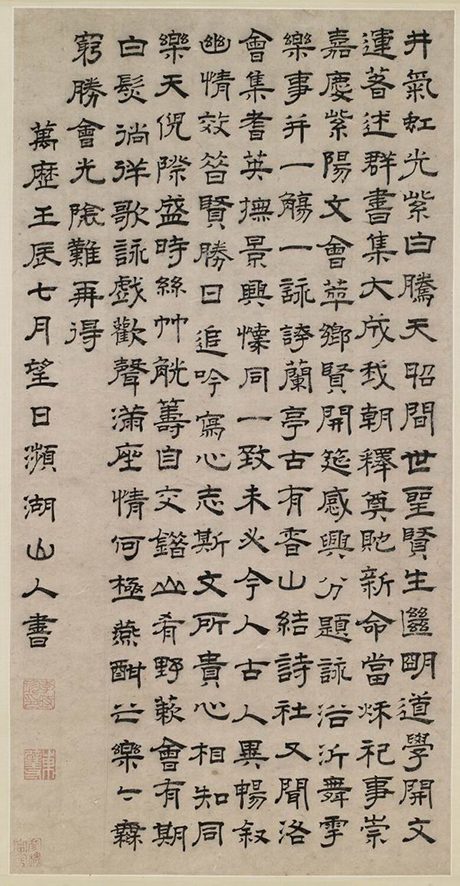 井氣虹光紫白騰天昭間世聖賢生繼明道學開文
運著述群書集大成我朝釋奠貤新命當秌祀事崇
嘉慶紫陽文會萃鄉賢開筵感興分題詠浴沂舞雩
樂事并一觴一詠誇蘭亭古有香山結詩社又聞洛
會集耆英撫景興懷同一致未必今人古人異暢叙
幽情效昝賢勝日追吟寫心志斯文所貴心相知同
樂天倪際盛時絲竹觥籌自交錯山肴野蔌會有期
白髮徜徉歌詠戲歡聲滿座情何極燕酣之樂々無
窮勝會光陰難再得
萬歷壬辰七月望日瀕湖山人書